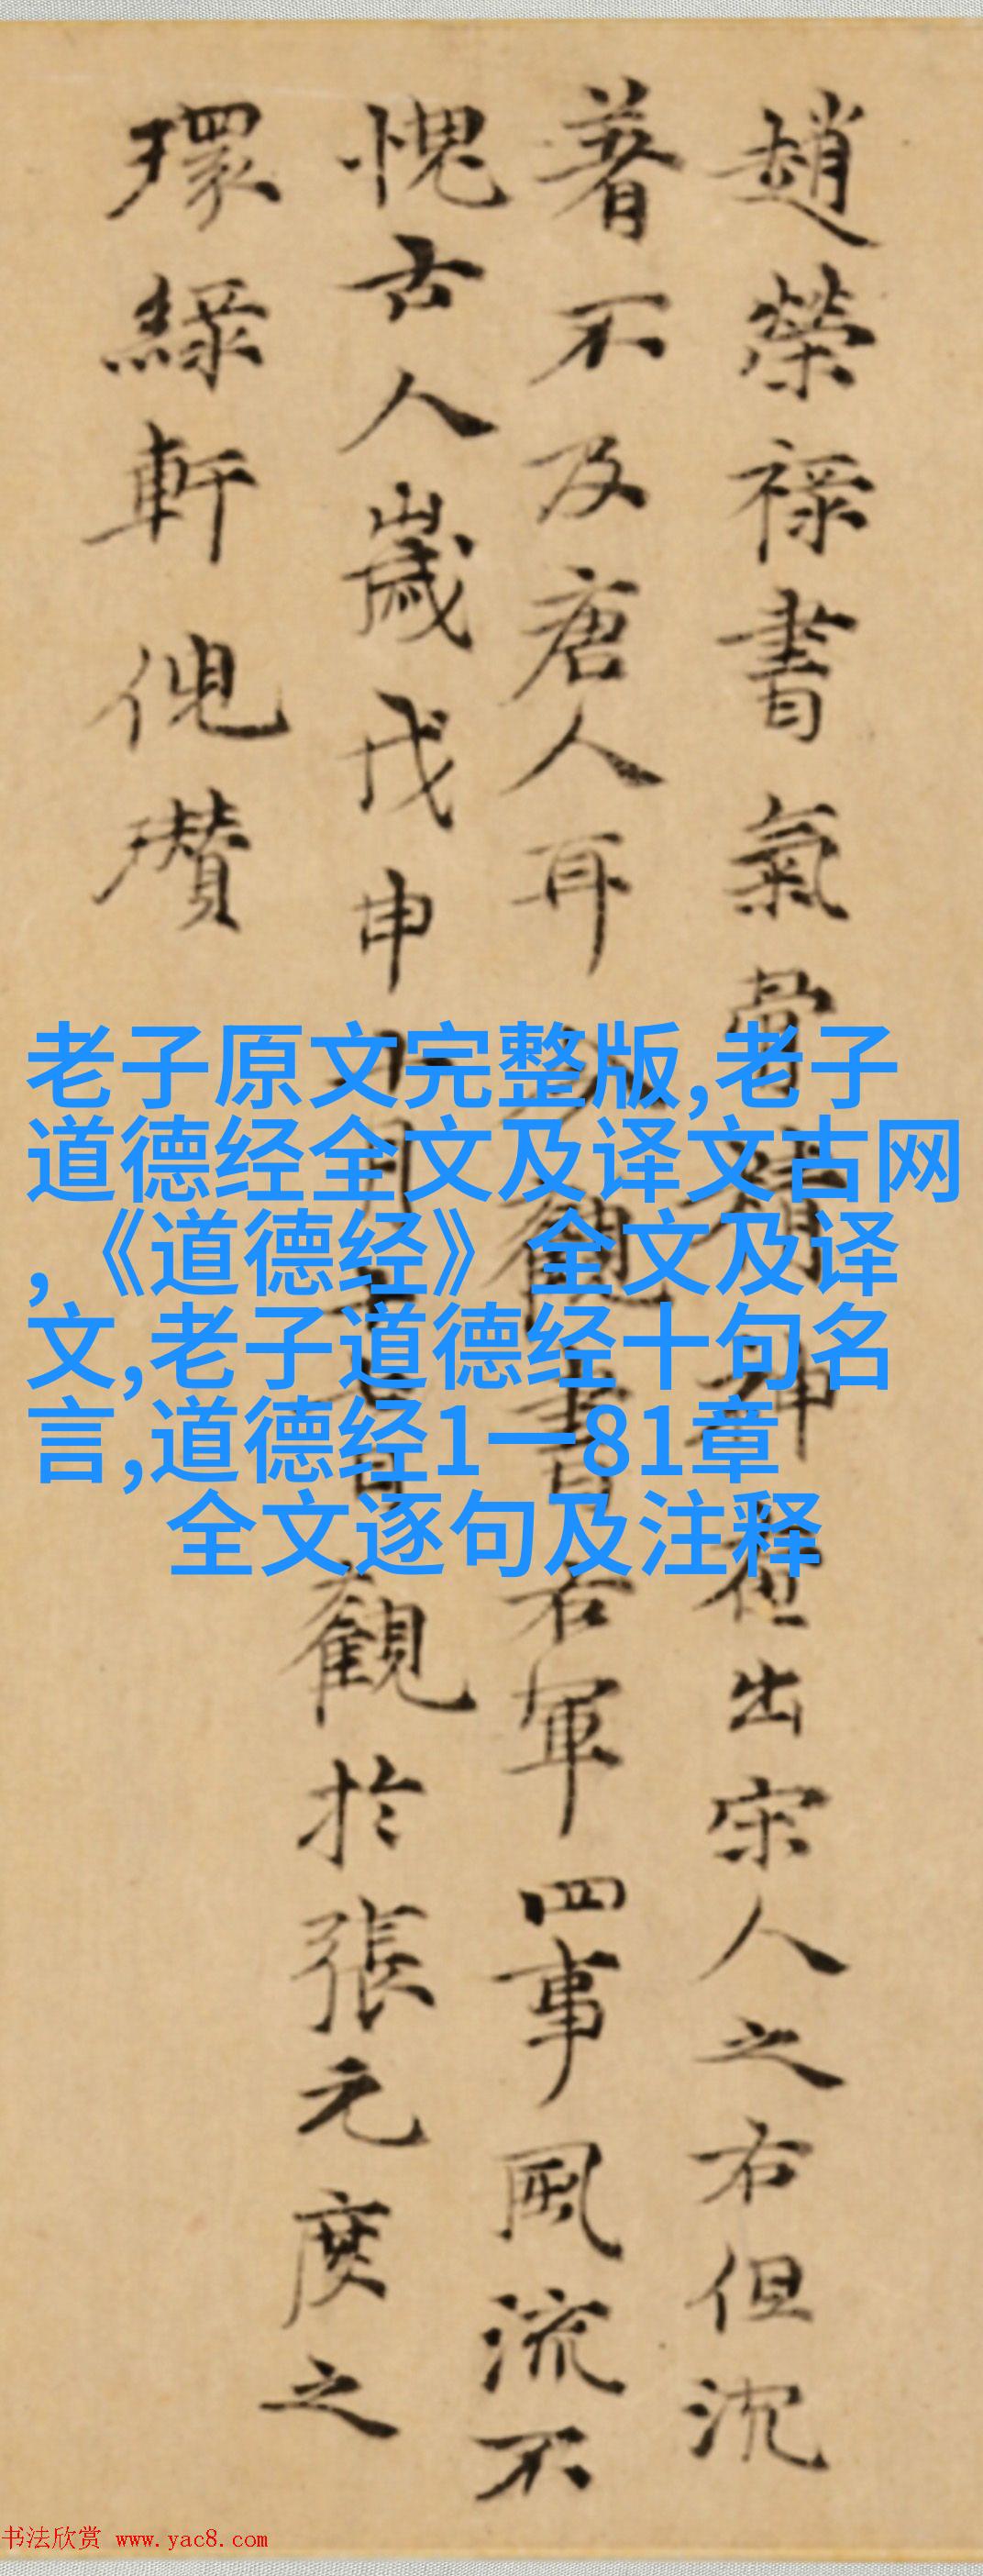 趙榮祿書氣骨精神在出宋人之右但沉
著不及唐人耳觀書右軍四事風流不
愧古人歲戊申月書觀於張元度之
環綠軒倪瓚
老子原文完整版,老子
道德经全文及译文古网
,《道德经》全文及译
文,老子道德经十句名
言,道德经1一81章
全文逐句及注释
书法欣赏 www.yac8.com